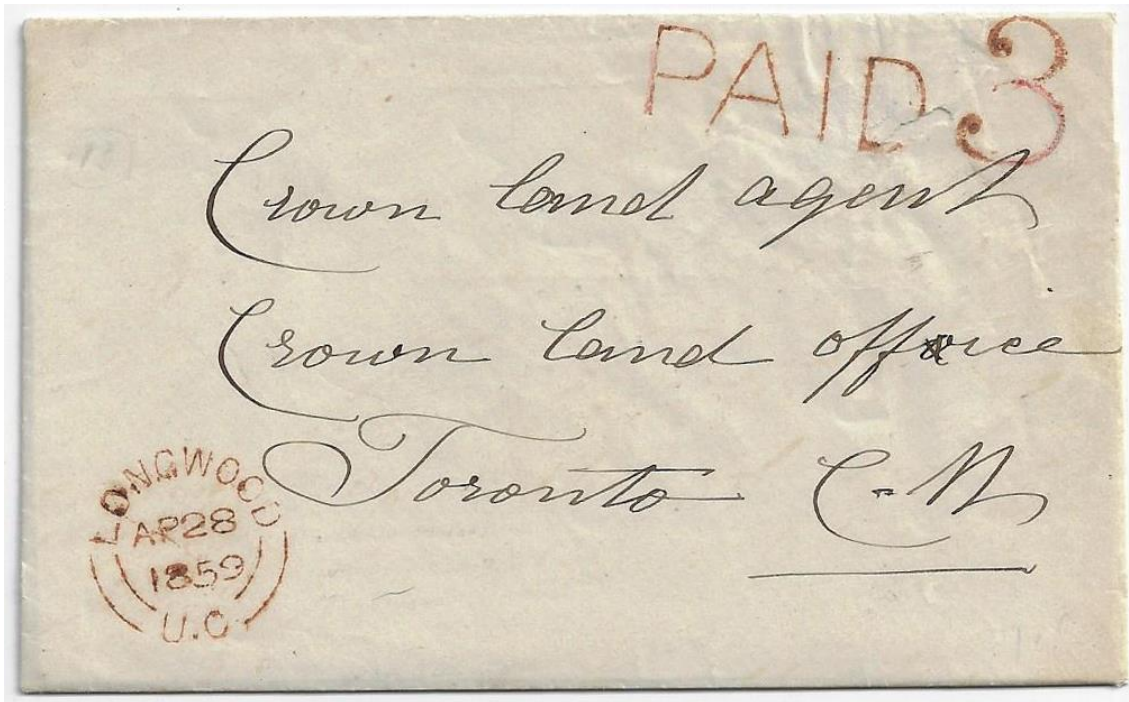 PAID 3
Crown land agent
Crown land office
Toronto C-W
LONGWOOD
AP 28
1859
U.C